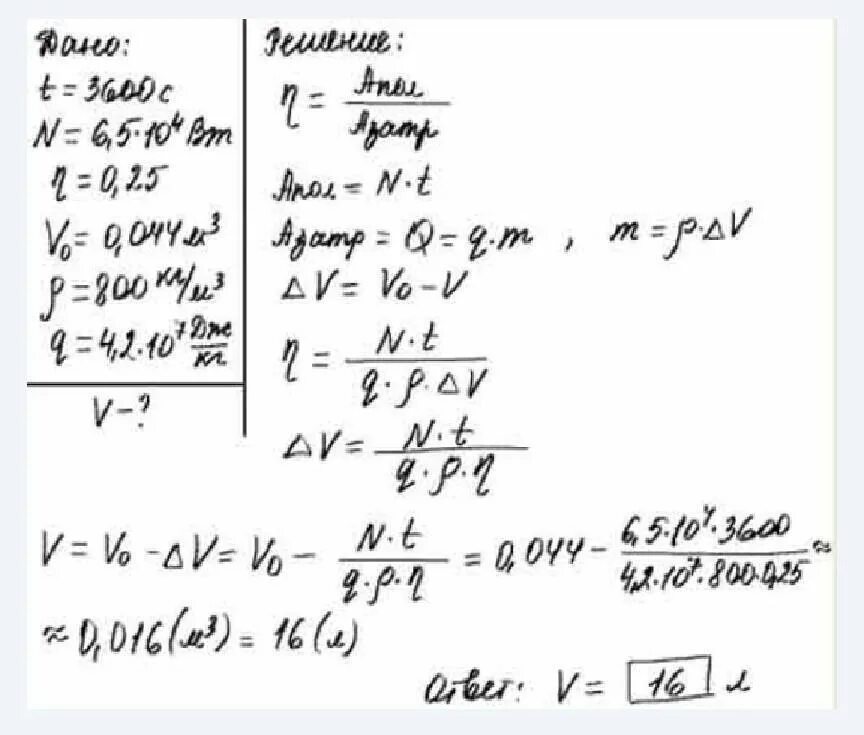 Дано:
t = 3600 с
N = 6,5·10⁴ Вт
η = 0,25
V₀ = 0,044 м³
ρ = 800 кг/м³
q = 4,2·10⁷ Дж/кг
V - ?
Решение:
η = Aпол/Aзатр
Aпол = N·t
Aзатр = Q = q·m , m = ρ·ΔV
ΔV = V₀ - V
η = N·t/q·ρ·ΔV
ΔV = N·t/q·ρ·η
V = V₀ - ΔV = V₀ - N·t/q·ρ·η = 0,044 - 6,5·10⁴·3600/4,2·10⁷·800·0,25 ≈
≈ 0,016 (м³) = 16 (л)
Ответ: V = 16 л